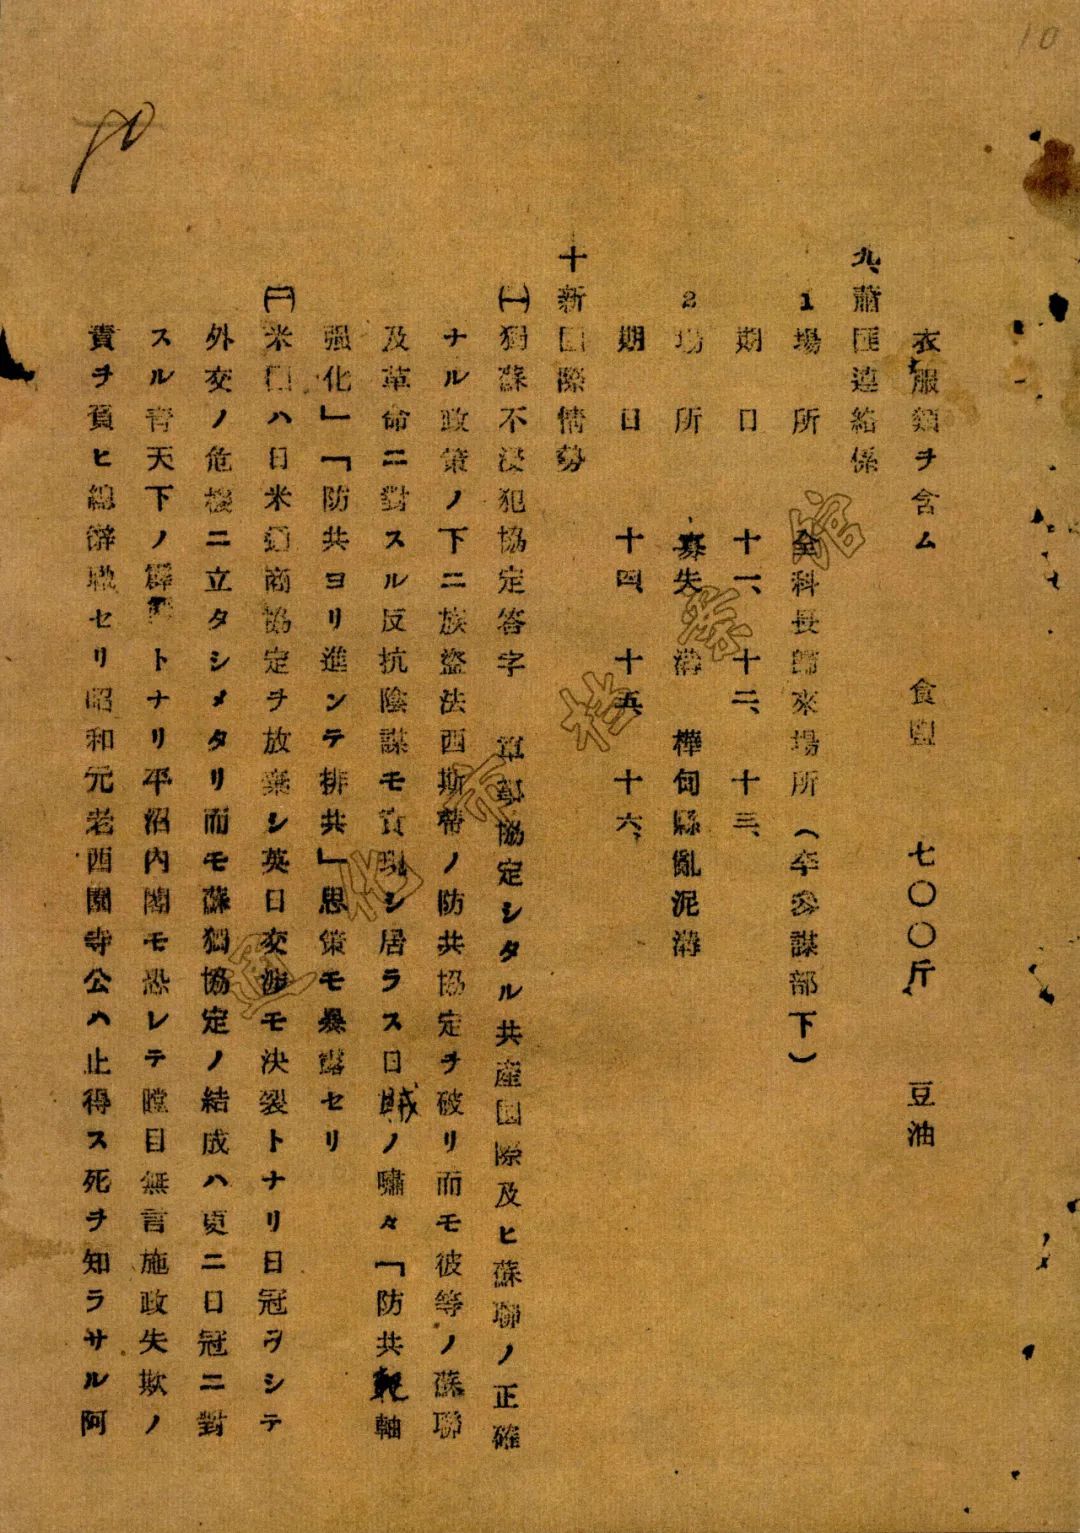 10
衣服類ヲ含ム 食鹽 七〇〇斤 豆油
九、蕭匪連絡係
1 場所 全科長歸來場所（牟參謀部下）
期日 十一、十二、十三、
2 場所 寡失溝 樺甸縣亂泥溝
期日 十四、十五、十六、
十 新国際情勢
㈠獨蘇不浸犯協定答字 協定シタル共産国際及ヒ蘇聯ノ正確
ナル政策ノ下ニ族盗法西斯帶ノ防共協定ヲ破リ而モ彼等ノ蘇聯
及革命ニ對スル反抗陰謀モ實現シ居ラス日賊ノ嘯々「防共範軸
强化」「防共ヨリ進ンテ排共」思策モ暴露セリ
㈡米国ハ日米通商協定ヲ放棄シ英日交渉モ決裂トナリ日冠ヲシテ
外交ノ危樓ニ立タシメタリ而モ蘇獨協定ノ結成ハ更ニ日冠ニ對
スル青天下ノ霹靂トナリ平沼内閣モ恐レテ瞠目無言施政失欺ノ
責ヲ負ヒ總辭職セリ昭和元老西園寺公ハ止得ス死ヲ知ラサル阿
通化市档案馆